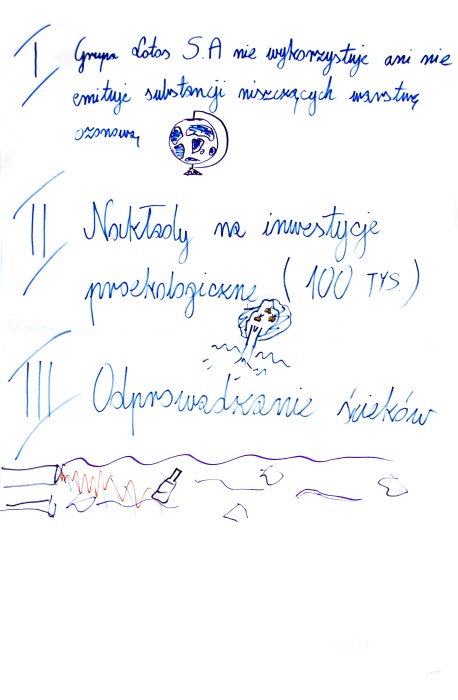 I Grupa Lotos S.A nie wykorzystuje ani nie
emituje substancji niszczących warstwę
ozonową
II Nakłady na inwestycje
proekologiczne (100 TYS.)
III Odprowadzanie ścieków